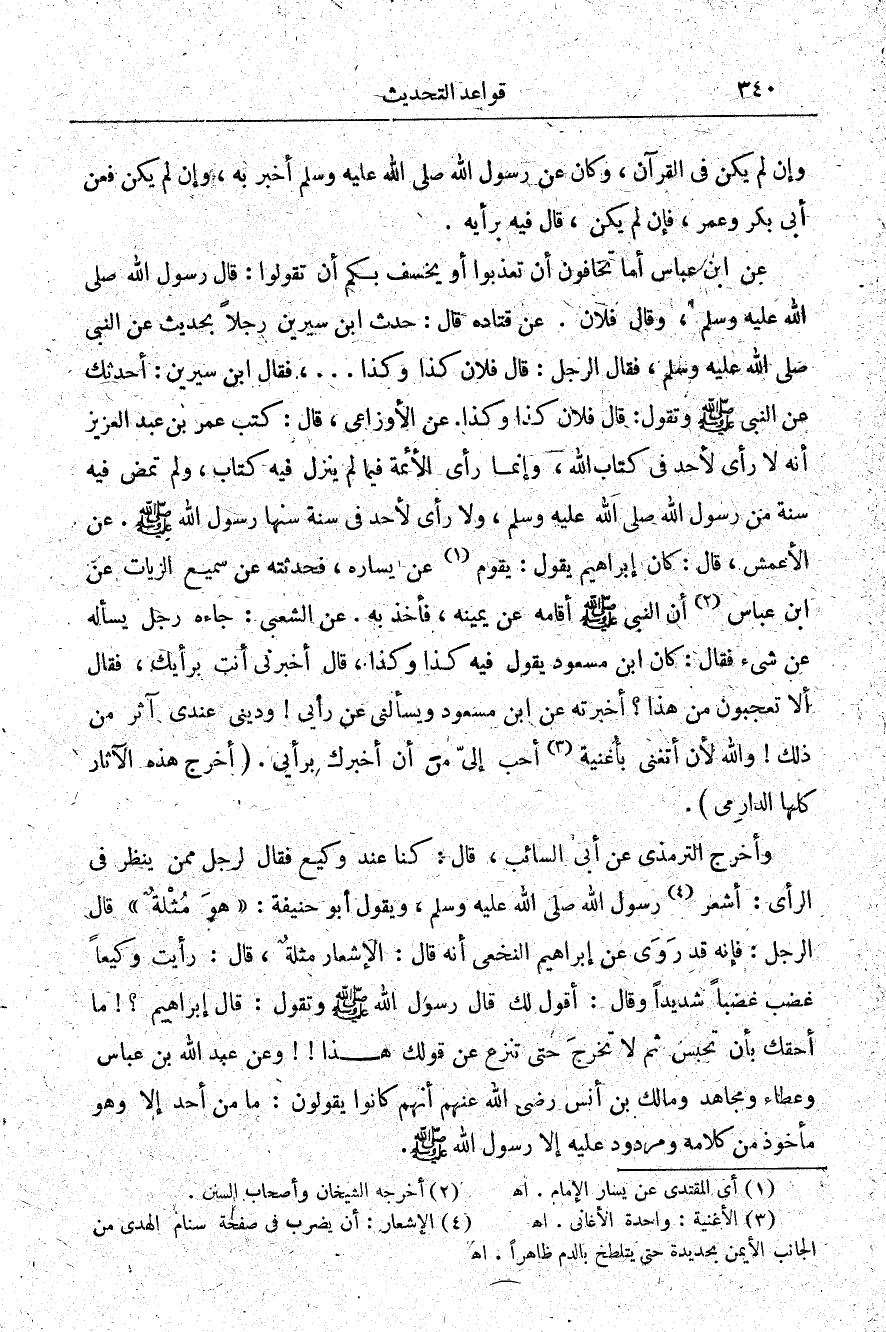 ٣٤٠ قواعد التحديث
وإن لم يكن فى القرآن ، وكان عن رسول الله صلى الله عليه وسلم أخبر به ، وإن لم يكن فعن
أبى بكر وعمر ، فإن لم يكن ، قال فيه برأيه .
عن ابن عباس أما تخافون أن تعذبوا أو يخسف بكم أن تقولوا : قال رسول الله صلى
الله عليه وسلم ، وقال فلان . عن قتاده قال : حدث ابن سيرين رجلاً بحديث عن النبى
صلى الله عليه وسلم ، فقال الرجل : قال فلان كذا وكذا . . . ، فقال ابن سيرين : أحدثك
عن النبى ﷺ وتقول : قال فلان كذا وكذا . عن الأوزاعى ، قال : كتب عمر بن عبد العزيز
أنه لا رأى لأحد فى كتاب الله ، وإنما رأى الأئمة فيما لم ينزل فيه كتاب ، ولم تمض فيه
سنة من رسول الله صلى الله عليه وسلم ، ولا رأى لأحد فى سنة سنها رسول الله ﷺ . عن
الأعمش ، قال : كان إبراهيم يقول : يقوم (١) عن يساره ، فحدثته عن سميع الزيات عن
ابن عباس (٢) أن النبى ﷺ أقامه عن يمينه ، فأخذ به . عن الشعبى : جاءه رجل يسأله
عن شىء فقال : كان ابن مسعود يقول فيه كذا وكذا ، قال أخبرنى أنت برأيك ، فقال
ألا تعجبون من هذا ؟ أخبرته عن ابن مسعود ويسألنى عن رأيى ! ودينى عندى آثر من
ذلك ! والله لأن أتغنى بأغنية (٣) أحب إلىّ من أن أخبرك برأيى . ( أخرج هذه الآثار
كلها الدارمى ) .
وأخرج الترمذى عن أبى السائب ، قال : كنا عند وكيع فقال لرجل ممن ينظر فى
الرأى : أشعر (٤) رسول الله صلى الله عليه وسلم ، ويقول أبو حنيفة : « هوَ مُثْلةٌ » قال
الرجل : فإنه قد رَوَى عن إبراهيم النخعى أنه قال : الإشعار مثلةٌ ، قال : رأيت وكيعاً
غضب غضباً شديداً وقال : أقول لك قال رسول الله ﷺ وتقول : قال إبراهيم ؟ ! ما
أحقك بأن تحبسَ ثم لا تخرجَ حتى تنزع عن قولك هـــذا ! ! وعن عبد الله بن عباس
وعطاء ومجاهد ومالك بن أنس رضى الله عنهم أنهم كانوا يقولون : ما من أحد إلا وهو
مأخوذ من كلامه ومردود عليه إلا رسول الله ﷺ .
(١) أى المقتدى عن يسار الإمام . اه (٢) أخرجه الشيخان وأصحاب السنن .
(٣) الأغنية : واحدة الأغانى . اه (٤) الإشعار : أن يضرب فى صفحة سنام الهدى من
الجانب الأيمن بحديدة حتى يتلطخ بالدم ظاهراً . اه